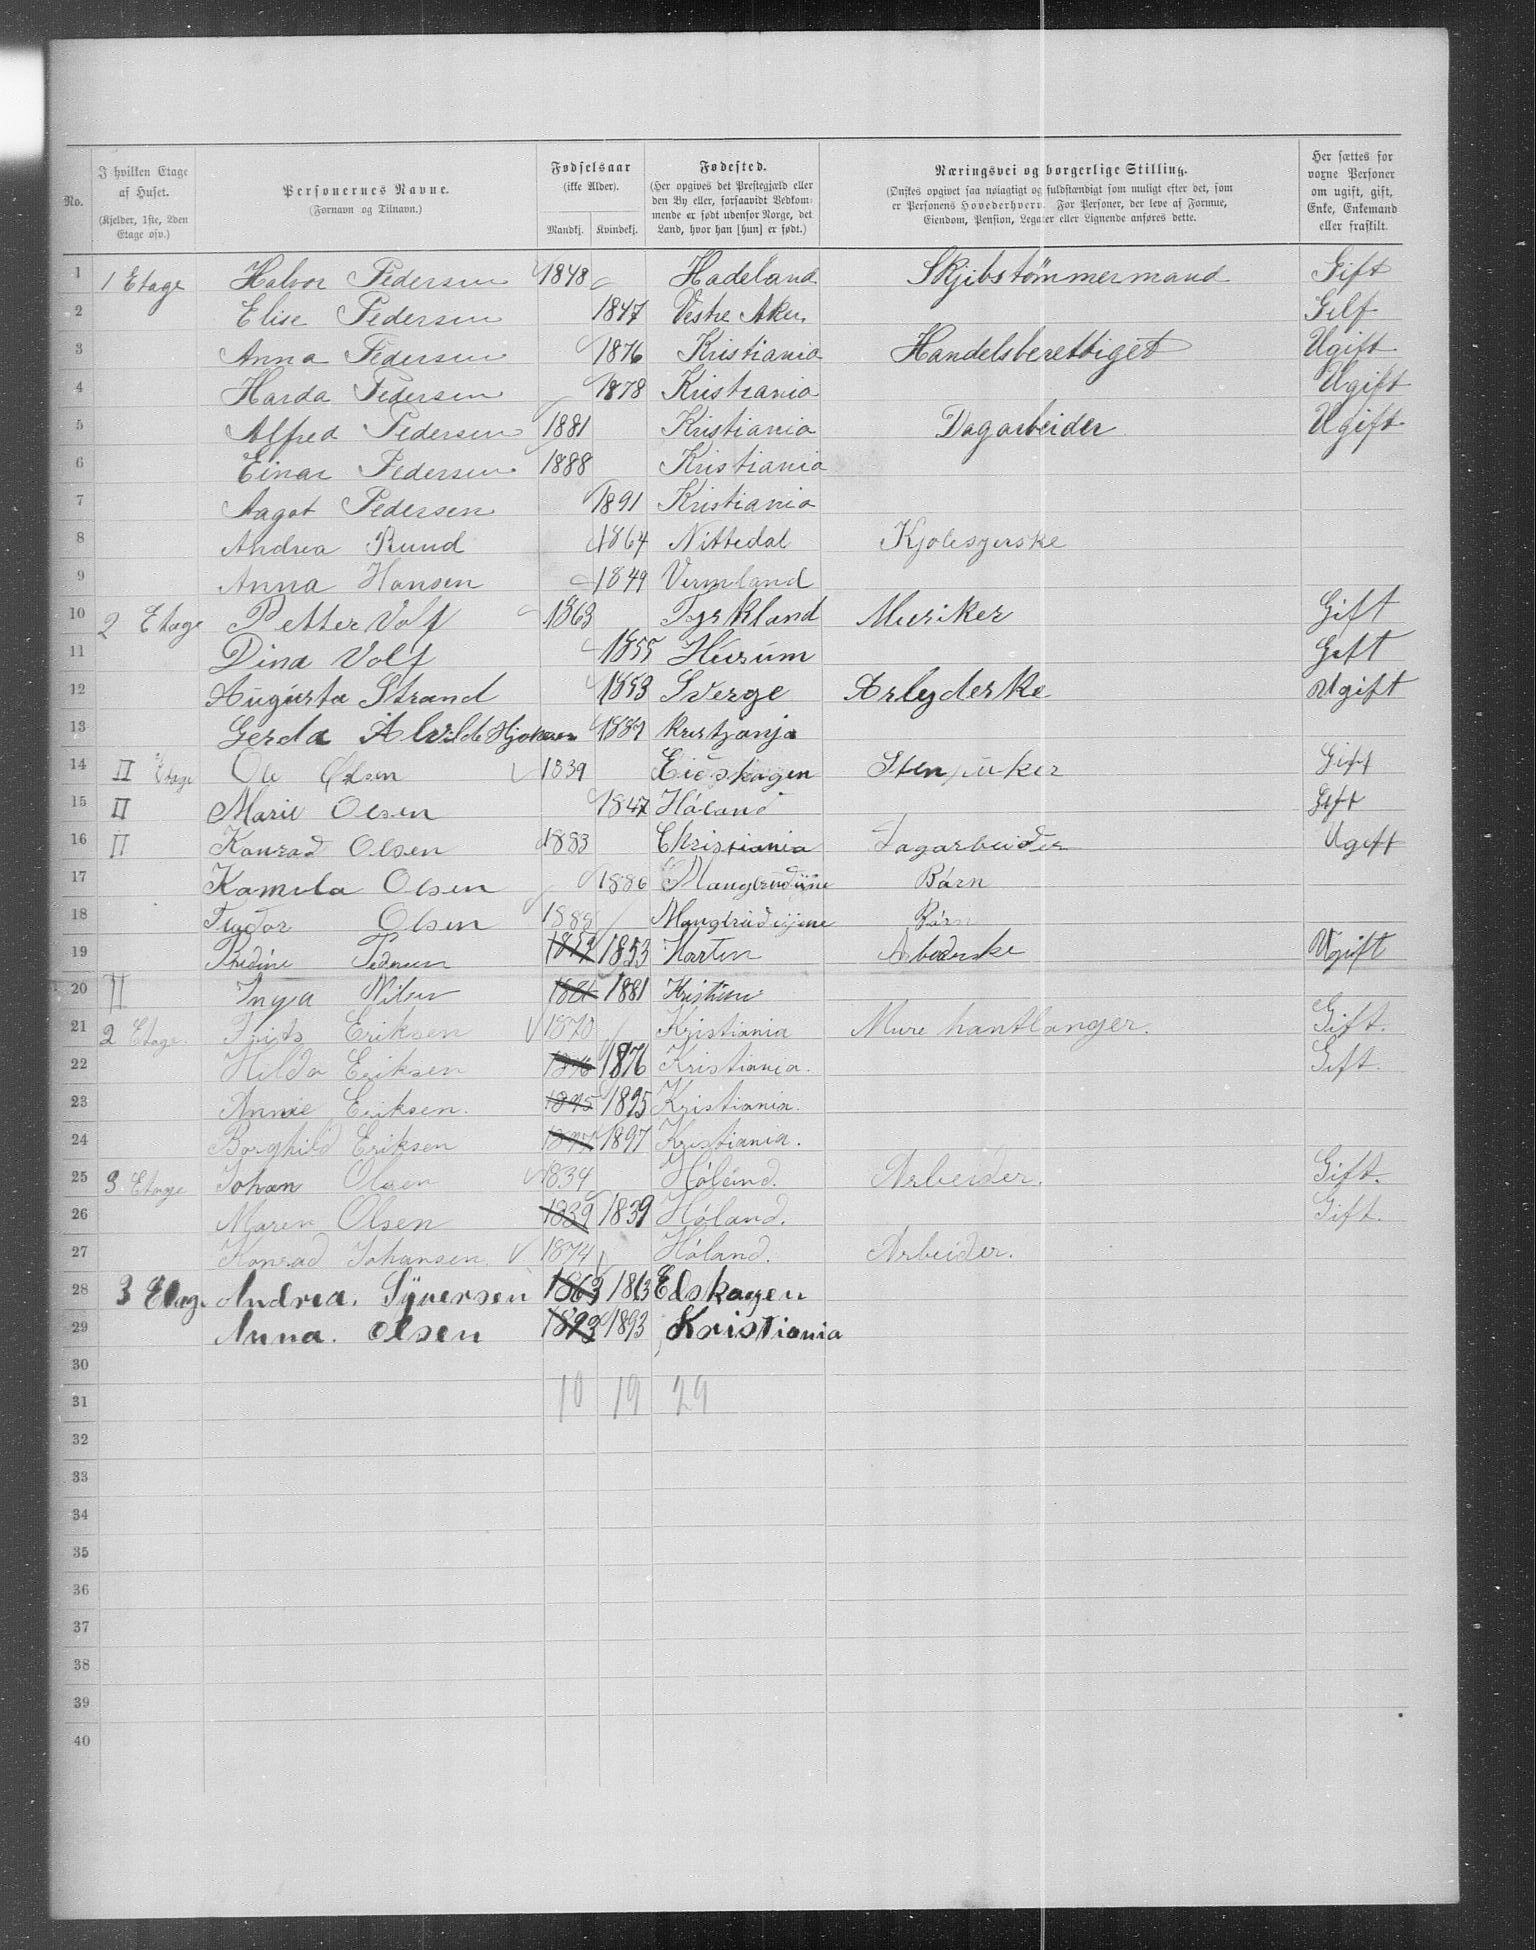 No.
I hvilken Etage af Huset. (Kjelder, 1ste, 2den Etage osv.)
Personernes Navne. (Fornavn og Tilnavn.)
Fødselsaar (ikke Alder). Mandkj. Kvindekj.
Fødested. (Her opgives det Prestegjæld eller den By eller, forsaavidt Vedkommende er født udenfor Norge, det Land, hvor han [hun] er født.)
Næringsvei og borgerlige Stilling. (Ønskes opgivet saa nøiagtigt og fuldstændigt som muligt efter det, som er Personens Hovederhverv. For Personer, der leve af Formue, Eiendom, Pension, Legater eller Lignende anføres dette.
Her sættes for voxne Personer om ugift, gift, Enke, Enkemand eller fraskilt.
1 1 Etage Halvor Pedersen 1848 Hadeland Skjibstømmermand Gift
2 Elise Pedersen 1847 Vestre Aker Gift
3 Anna Pedersen 1876 Kristiania Handelsberettiget Ugift
4 Harda Pedersen 1878 Kristiania Ugift
5 Alfred Pedersen 1881 Kristiania Dagarbeider Ugift
6 Einar Pedersen 1888 Kristiania
7 Aagot Pedersen 1891 Kristiania
8 Andrea Rund 1864 Nittedal Kjolesyerske
9 Anna Hansen 1849 Vermland
10 2 Etage Petter Volf 1863 Tyrkland Musiker Gift
11 Dina Volf 1855 Hurum Gift
12 Augusta Strand 1853 Sverge Arbyderske Ugift
13 Gerda Alvilde 1889 Kristjanja
14 II Etage Ole Olsen 1839 Eidskogen Stenpuker Gift
15 II Marie Olsen 1847 Høland Gift
16 II Konrad Olsen 1883 Christiania Dagarbeider Ugift
17 Kamila Olsen 1886 Børn
18 Teodor Olsen 1889 Børn
19 Pedersen 1853 1853 Ugift
20 II Inga 1881 1881
21 2 Etage. Frits Eriksen 1870 Kristiania Mure hantlanger. Gift.
22 Hilda Eriksen 1876 1876 Kristiania. Gift.
23 Annie Eriksen. 1895 1895 Kristiania.
24 Borghild Eriksen 1897 1897 Kristiania.
25 3 Etage Johan Olsen 1834 Høland. Arbeider. Gift.
26 Maren Olsen 1839 1839 Høland. Gift.
27 Konrad Johansen 1874 Høland. Arbeider.
28 3 Etage Andrea. Syversen 1863 1863 Edskogen
29 Anna. Olsen 1893 1893 Kristiania
30
31 10 19 29
32
33
34
35
36
37
38
39
40